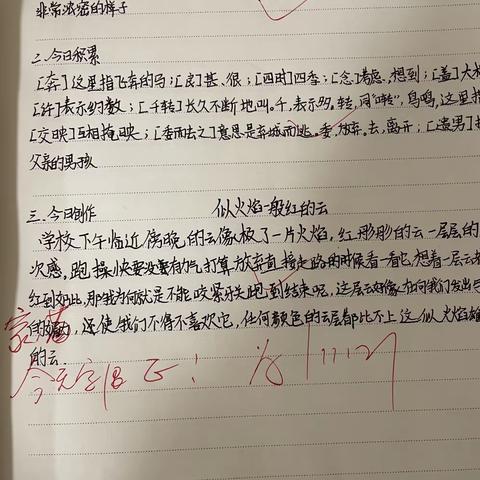 非常浓密的样子
二.今日积累
[奔]这里指飞奔的马;[良]甚、很;[四时]四季;[念]考虑、想到;[盖]大
[许]表示约数;[千转]长久不断地叫。千,表示多。转,同“啭”,鸟鸣,这里指
[交映]互相掩映;[委而去之]意思是弃城而逃。委,放弃。去,离开;[遗男]
父亲的男孩
三.今日创作 似火焰一般红的云
学校下午临近傍晚,的云像极了一片火焰,红彤彤的云一层层的
次感,跑操快要没有力气打算放弃直接走路的时候看一看它,想着一层云
红到如此,那我为何就是不能咬紧牙关跑到结束呢,这层云好像在向我们发出
的,还使我们不得不喜欢它,任何颜色的云层都比不上这似火焰
的云
今天字